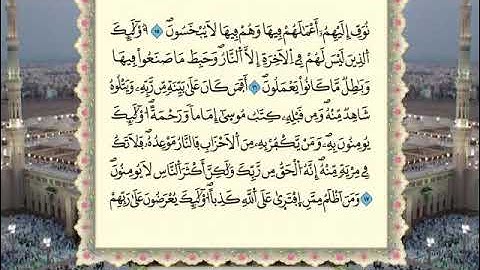 نُوَفِّ إِلَيْهِمُۥٓ أَعْمَٰلَهُمْ فِيهَا وَهُمْ فِيهَا لَا يُبْخَسُونَۖ ١٥ أُوْلَٰٓئِكَ
اَ۬لذِينَ لَيْسَ لَهُمْ فِے اِ۬لَاخِرَةِ إِلَّا اَ۬لنَّارُۖ وَحَبِطَ مَا صَنَعُواْ فِيهَا
وَبَٰطِلٞ مَّا كَانُواْ يَعْمَلُونَۖ ١٦ أَفَمَن كَانَ عَلَىٰ بَيِّنَةٖ مِّن رَّبِّهِۦ وَيَتْلُوهُ
شَاهِدٞ مِّنْهُۖ وَمِن قَبْلِهِۦ كِتَٰبُ مُوسَىٰٓ إِمَاماٗ وَرَحْمَةًۖ ا۟وْلَٰٓئِكَ
يُومِنُونَ بِهِۦۖ وَمَنْ يَّكْفُرْ بِهِۦ مِنَ اَ۬لَاحْزَابِ فَالنَّارُ مَوْعِدُهُۥۖ فَلَا تَكُ
فِے مِرْيَةٖ مِّنْهُۖ إِنَّهُ اُ۬لْحَقُّ مِن رَّبِّكَ وَلَٰكِنَّ أَكْثَرَ اَ۬لنَّاسِ لَا يُومِنُونَۖ
١٧ وَمَنَ اَظْلَمُ مِمَّنِ اِ۪فْتَر۪ىٰ عَلَى اَ۬للَّهِ كَذِباًۖ ا۟وْلَٰٓئِكَ يُعْرَضُونَ عَلَىٰ رَبِّهِمْ